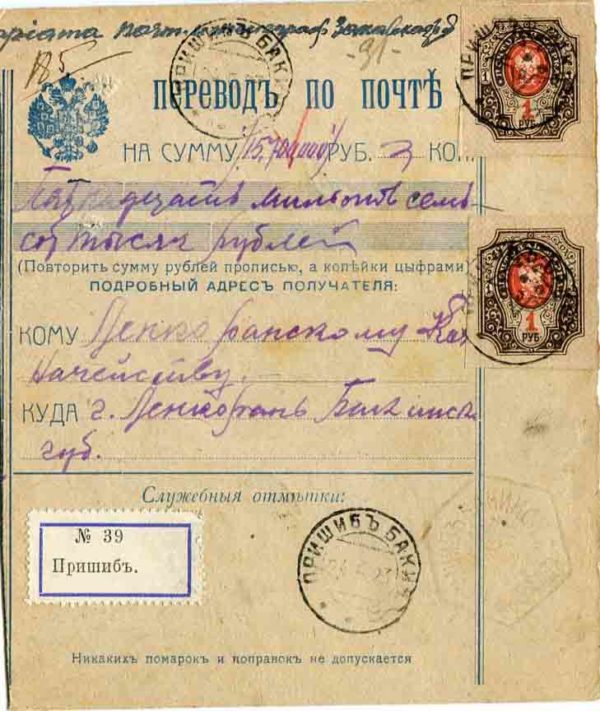 почт.
185
-91-
ПРИШИБЪ БАКИН
ПЕРЕВОДЪ ПО ПОЧТѢ
НА СУММУ 15.700000 РУБ. КОП.
Пятнадцать мильонъ семь-
сот тысяч рублей
(Повторить сумму рублей прописью, а копѣйки цыфрами)
ПОДРОБНЫЙ АДРЕСЪ ПОЛУЧАТЕЛЯ:
КОМУ Ленкоранскому Каз
начейству.
КУДА г. Ленкорань Бакинск
губ.
1
РУБ
1
РУБ
Служебныя отмѣтки:
№ 39
Пришибъ.
ПРИШИБЪ БАКИН
Никакихъ помарокъ и поправокъ не допускается